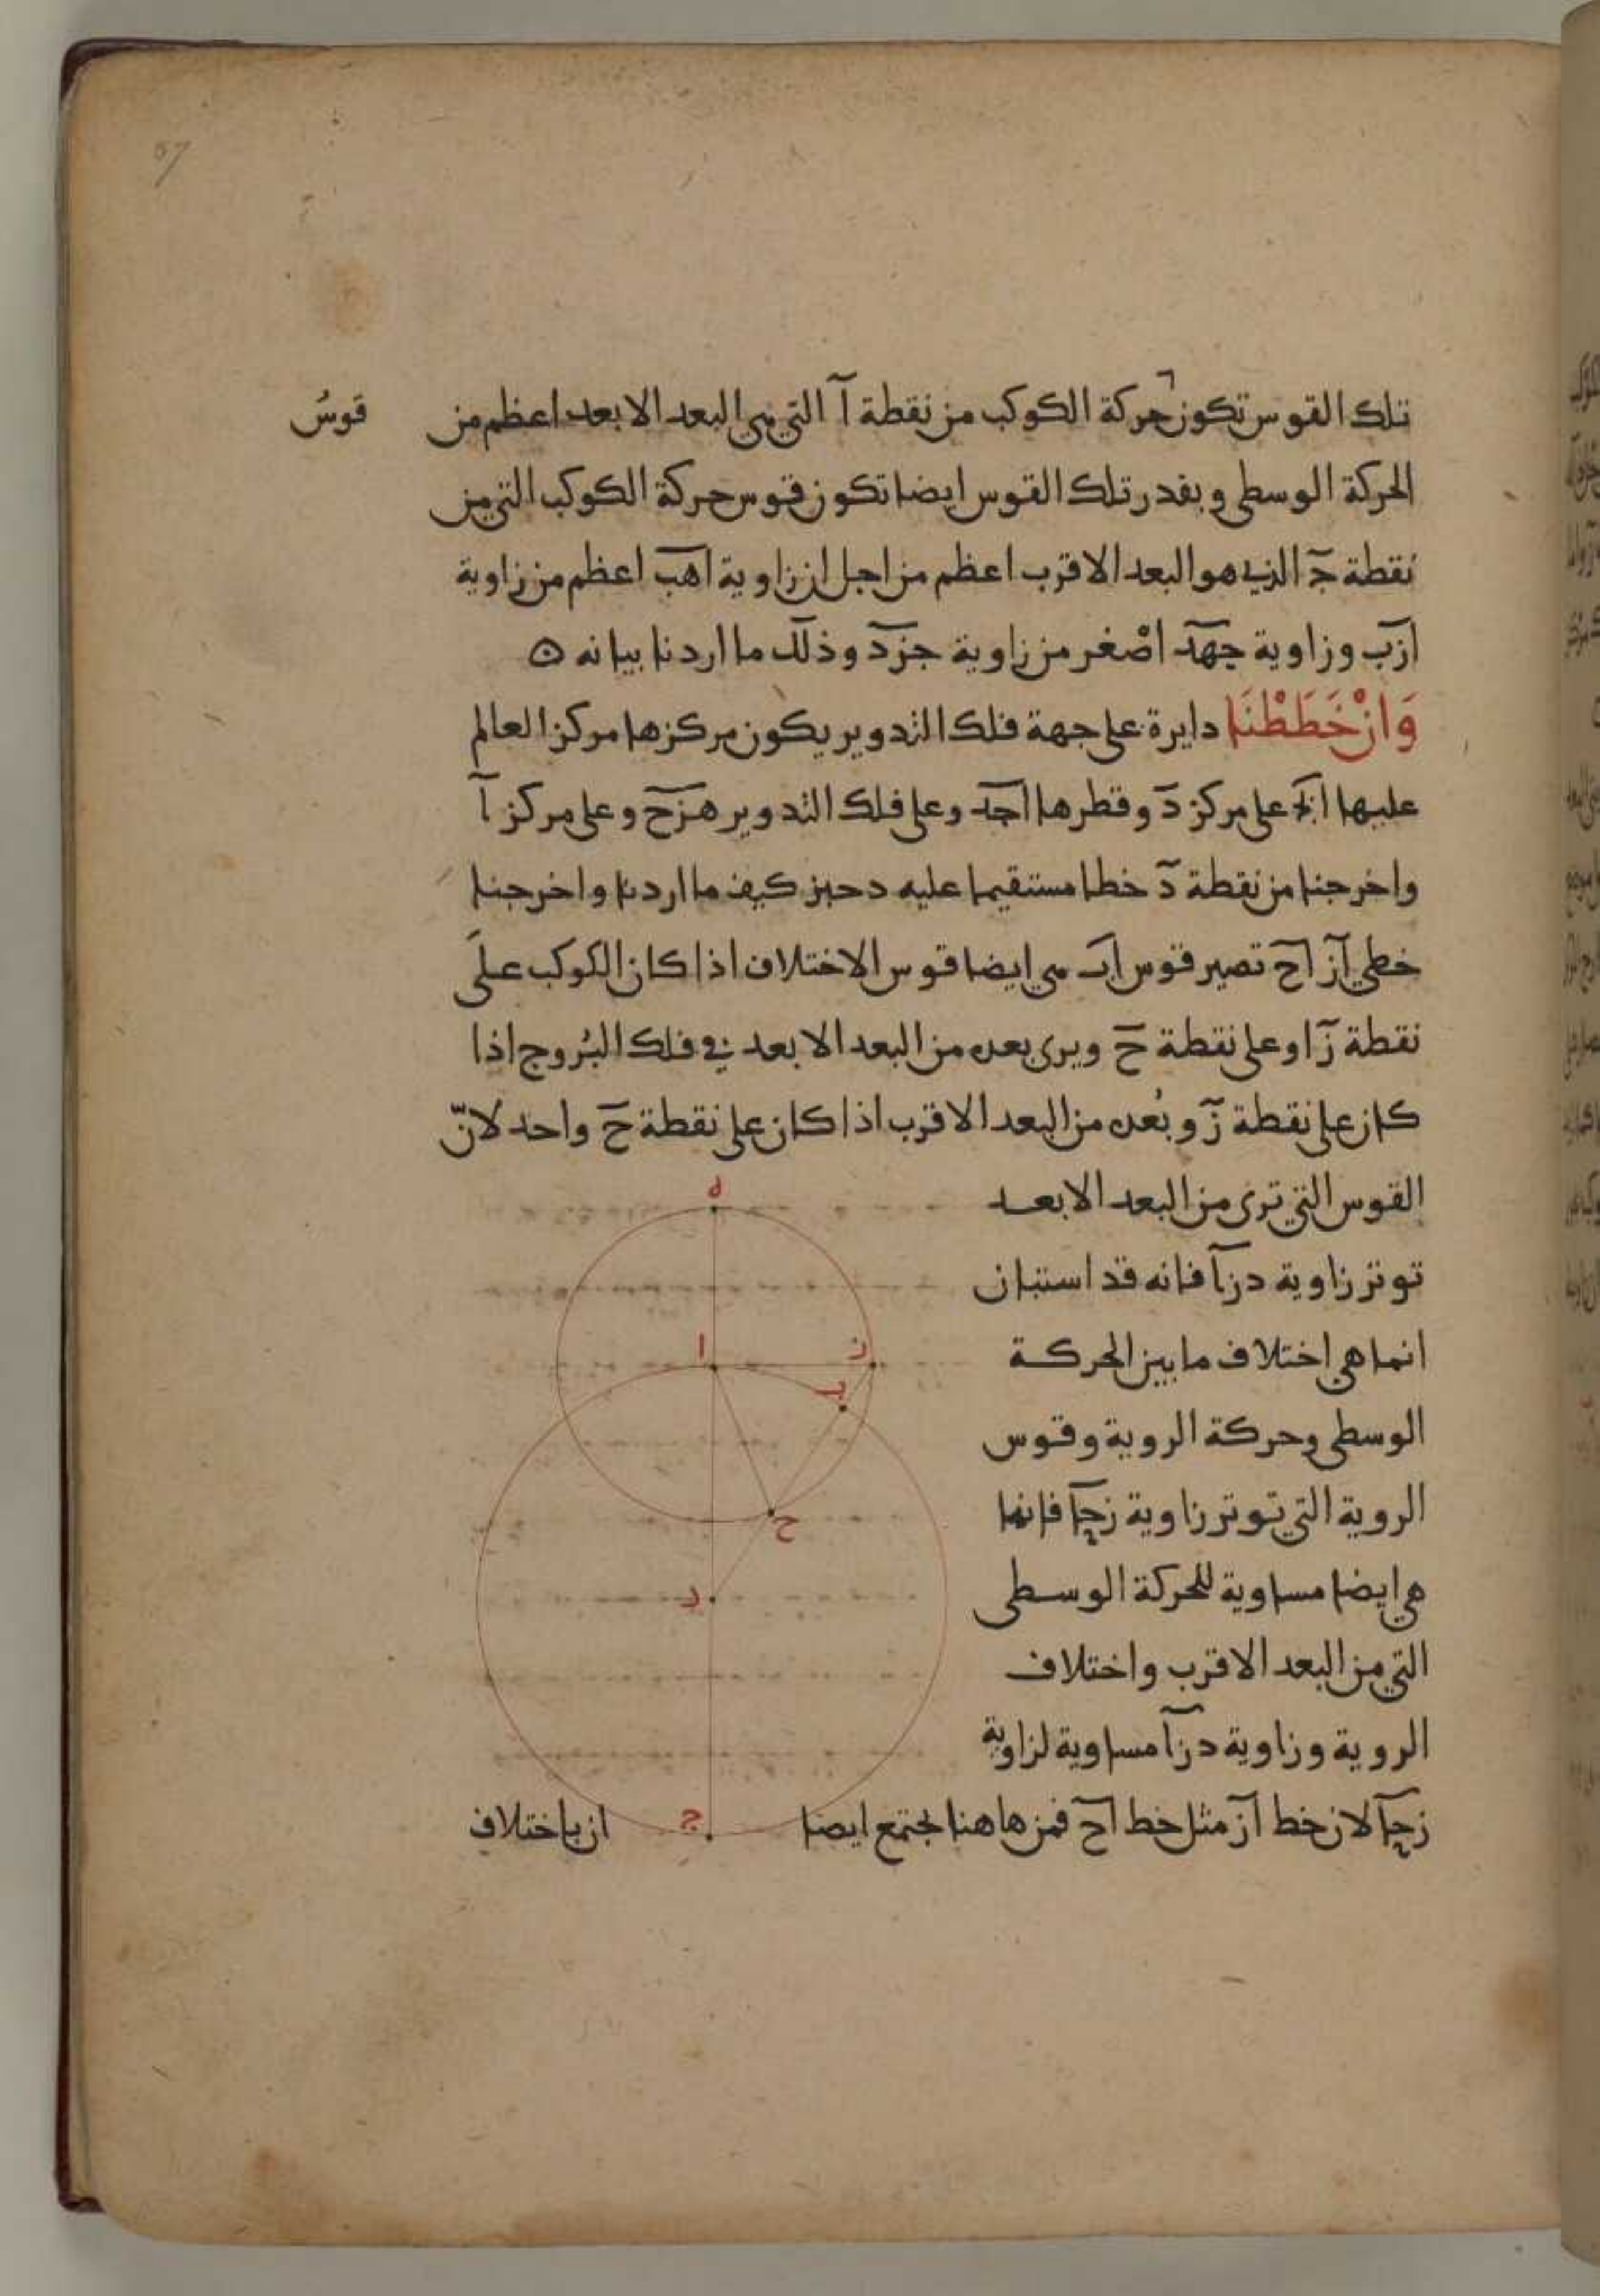 تلك القوس تكون حركة الكوكب من نقطة آ التي هي البعد الابعد اعظم من
قوسُ
الحركة الوسطى وبقدر تلك القوس ايضا تكون قوس حركة الكوكب التي من
نقطة جَ الذي هو البعد الاقرب اعظم من اجل ان زاوية اهب اعظم من زاوية
ازب وزاوية جهد اصْغر من زاوية جزد وذلك ما اردنا بيانه
وَانْ خَطَطْنَا دايرة على جهة فلك التدوير يكون مركزها مركز العالم
عليها على مركز د وقطرها اجد وعلى فلك التدوير هزح وعلى مركز آ
واخرجنا من نقطة د خطا مستقيما عليه دحبز كيف ما اردنا واخرجنا
خطي از اح تصير قوس اب هي ايضا قوس الاختلاف اذا كان الكوكب على
نقطة ز او على نقطة ح ويرى بعده من البعد الابعد في فلك البُروج اذا
كان على نقطة ز وبُعده من البعد الاقرب اذا كان على نقطة ح واحد لانّ
القوس التي ترى من البعد الابعد
توتر زاوية دزا فانه قد استبان
انما هي اختلاف ما بين الحركة
الوسطى وحركة الروية وقوس
الروية التي توتر زاوية زحا فانها
هي ايضا مساوية للحركة الوسطى
التي من البعد الاقرب واختلاف
الروية وزاوية دزا مساوية لزاوية
زحا لان خط از مثل خط اح فمن هاهنا يجتمع ايضا
ان باختلاف
ه
ا
ز
ب
ح
د
ج